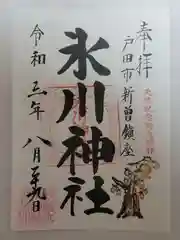 奉拝
戸田市新曽鎮座
氷川神社
令和三年八月